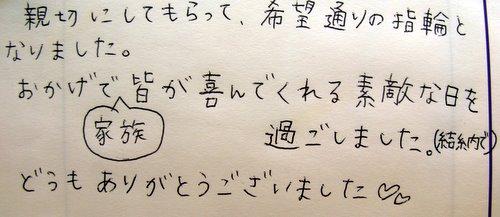 親切にしてもらって、希望通りの指輪と
なりました。
おかげで皆が喜んでくれる素敵な日を
家族
過ごしました。(結納で)
どうもありがとうございました♡♡